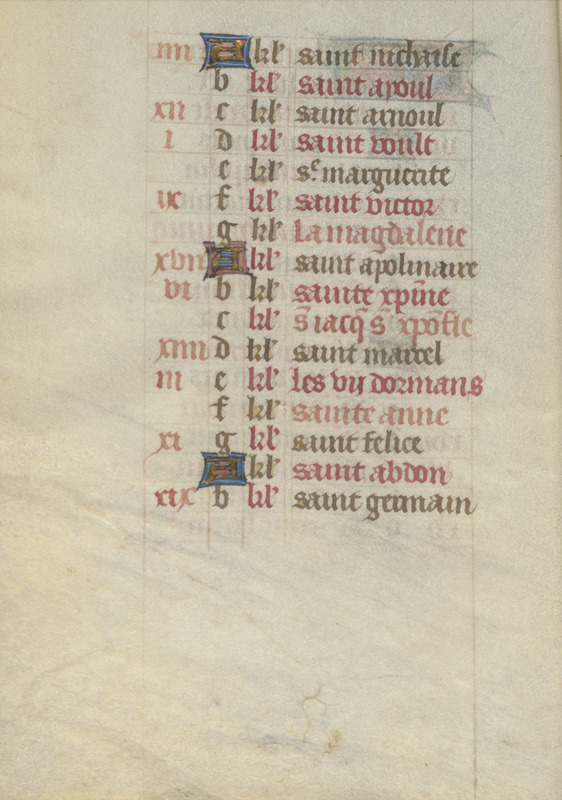 iiii A kl' saint nichaise
b kl' saint apoul
xii c kl' saint arnoul
i d kl' saint voult
e kl' sͤ. marguerite
ix f kl' saint victor
g kl' La magdalene
xvii A kl' saint apolinaire
vi b kl' sainte xp̄ine
c kl' s̄ iacq̄ s̄ xp̄ofle
xiiii d kl' saint marcel
iii e kl' Les vij dormans
f kl' sainte anne
xi g kl' saint felice
A kl' saint abdon
xix b kl' saint germain